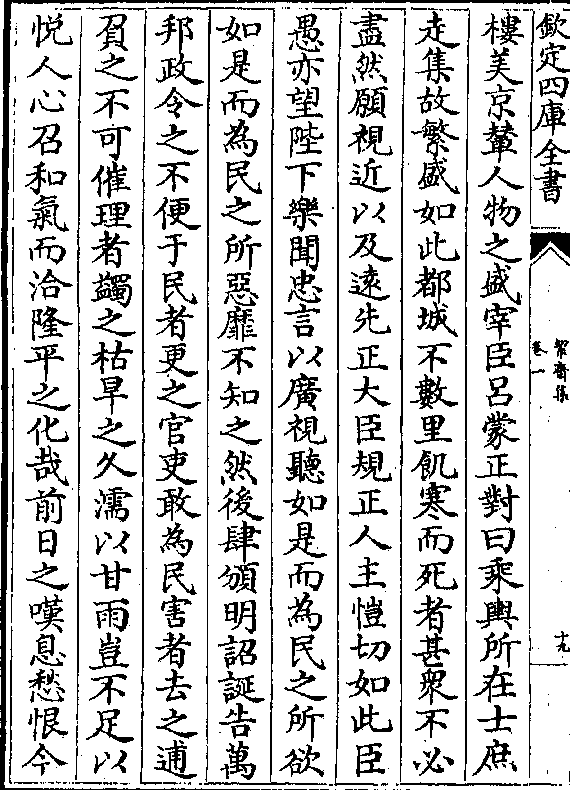 欽定四庫全書
絜齋集
卷一
十九
樓美京輦人物之盛宰臣呂蒙正對曰乘輿所在士庶
走集故繁盛如此都城不數里飢寒而死者甚衆不必
盡然願視近以及遠先正大臣規正人主愷切如此臣
愚亦望陛下樂聞忠言以廣視聽如是而為民之所欲
如是而為民之所惡靡不知之然後肆頒明詔誕告萬
邦政令之不便于民者更之官吏敢為民害者去之逋
負之不可催理者蠲之枯旱之久濡以甘雨豈不足以
悦人心召和氣而洽隆平之化哉前日之嘆息愁恨今